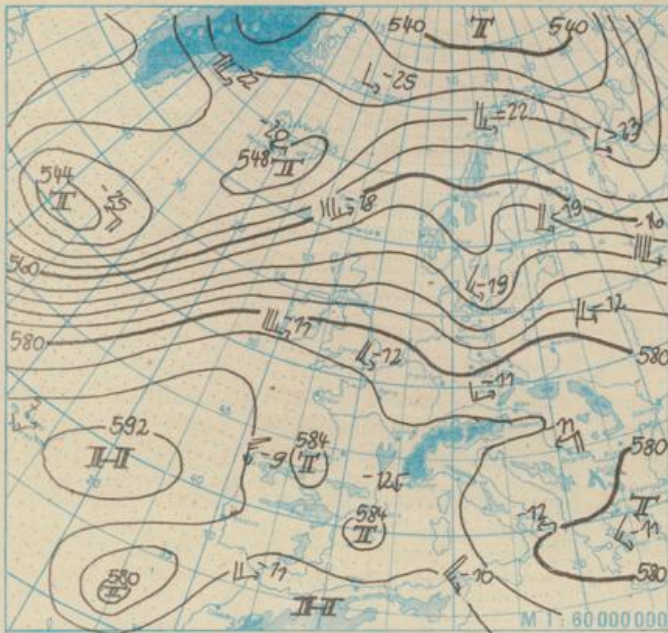 540 T 540
-22
-25
-22
-23
-20
548 T
544
T
-25
-18
-19
-16
560
-19
-12
-11
580
-12
580
-11
592
H
584
T
-9
-11
580
-12
584
T
-12
T
-11
580
T
-11
-10
580
H
M 1 : 60 000 000